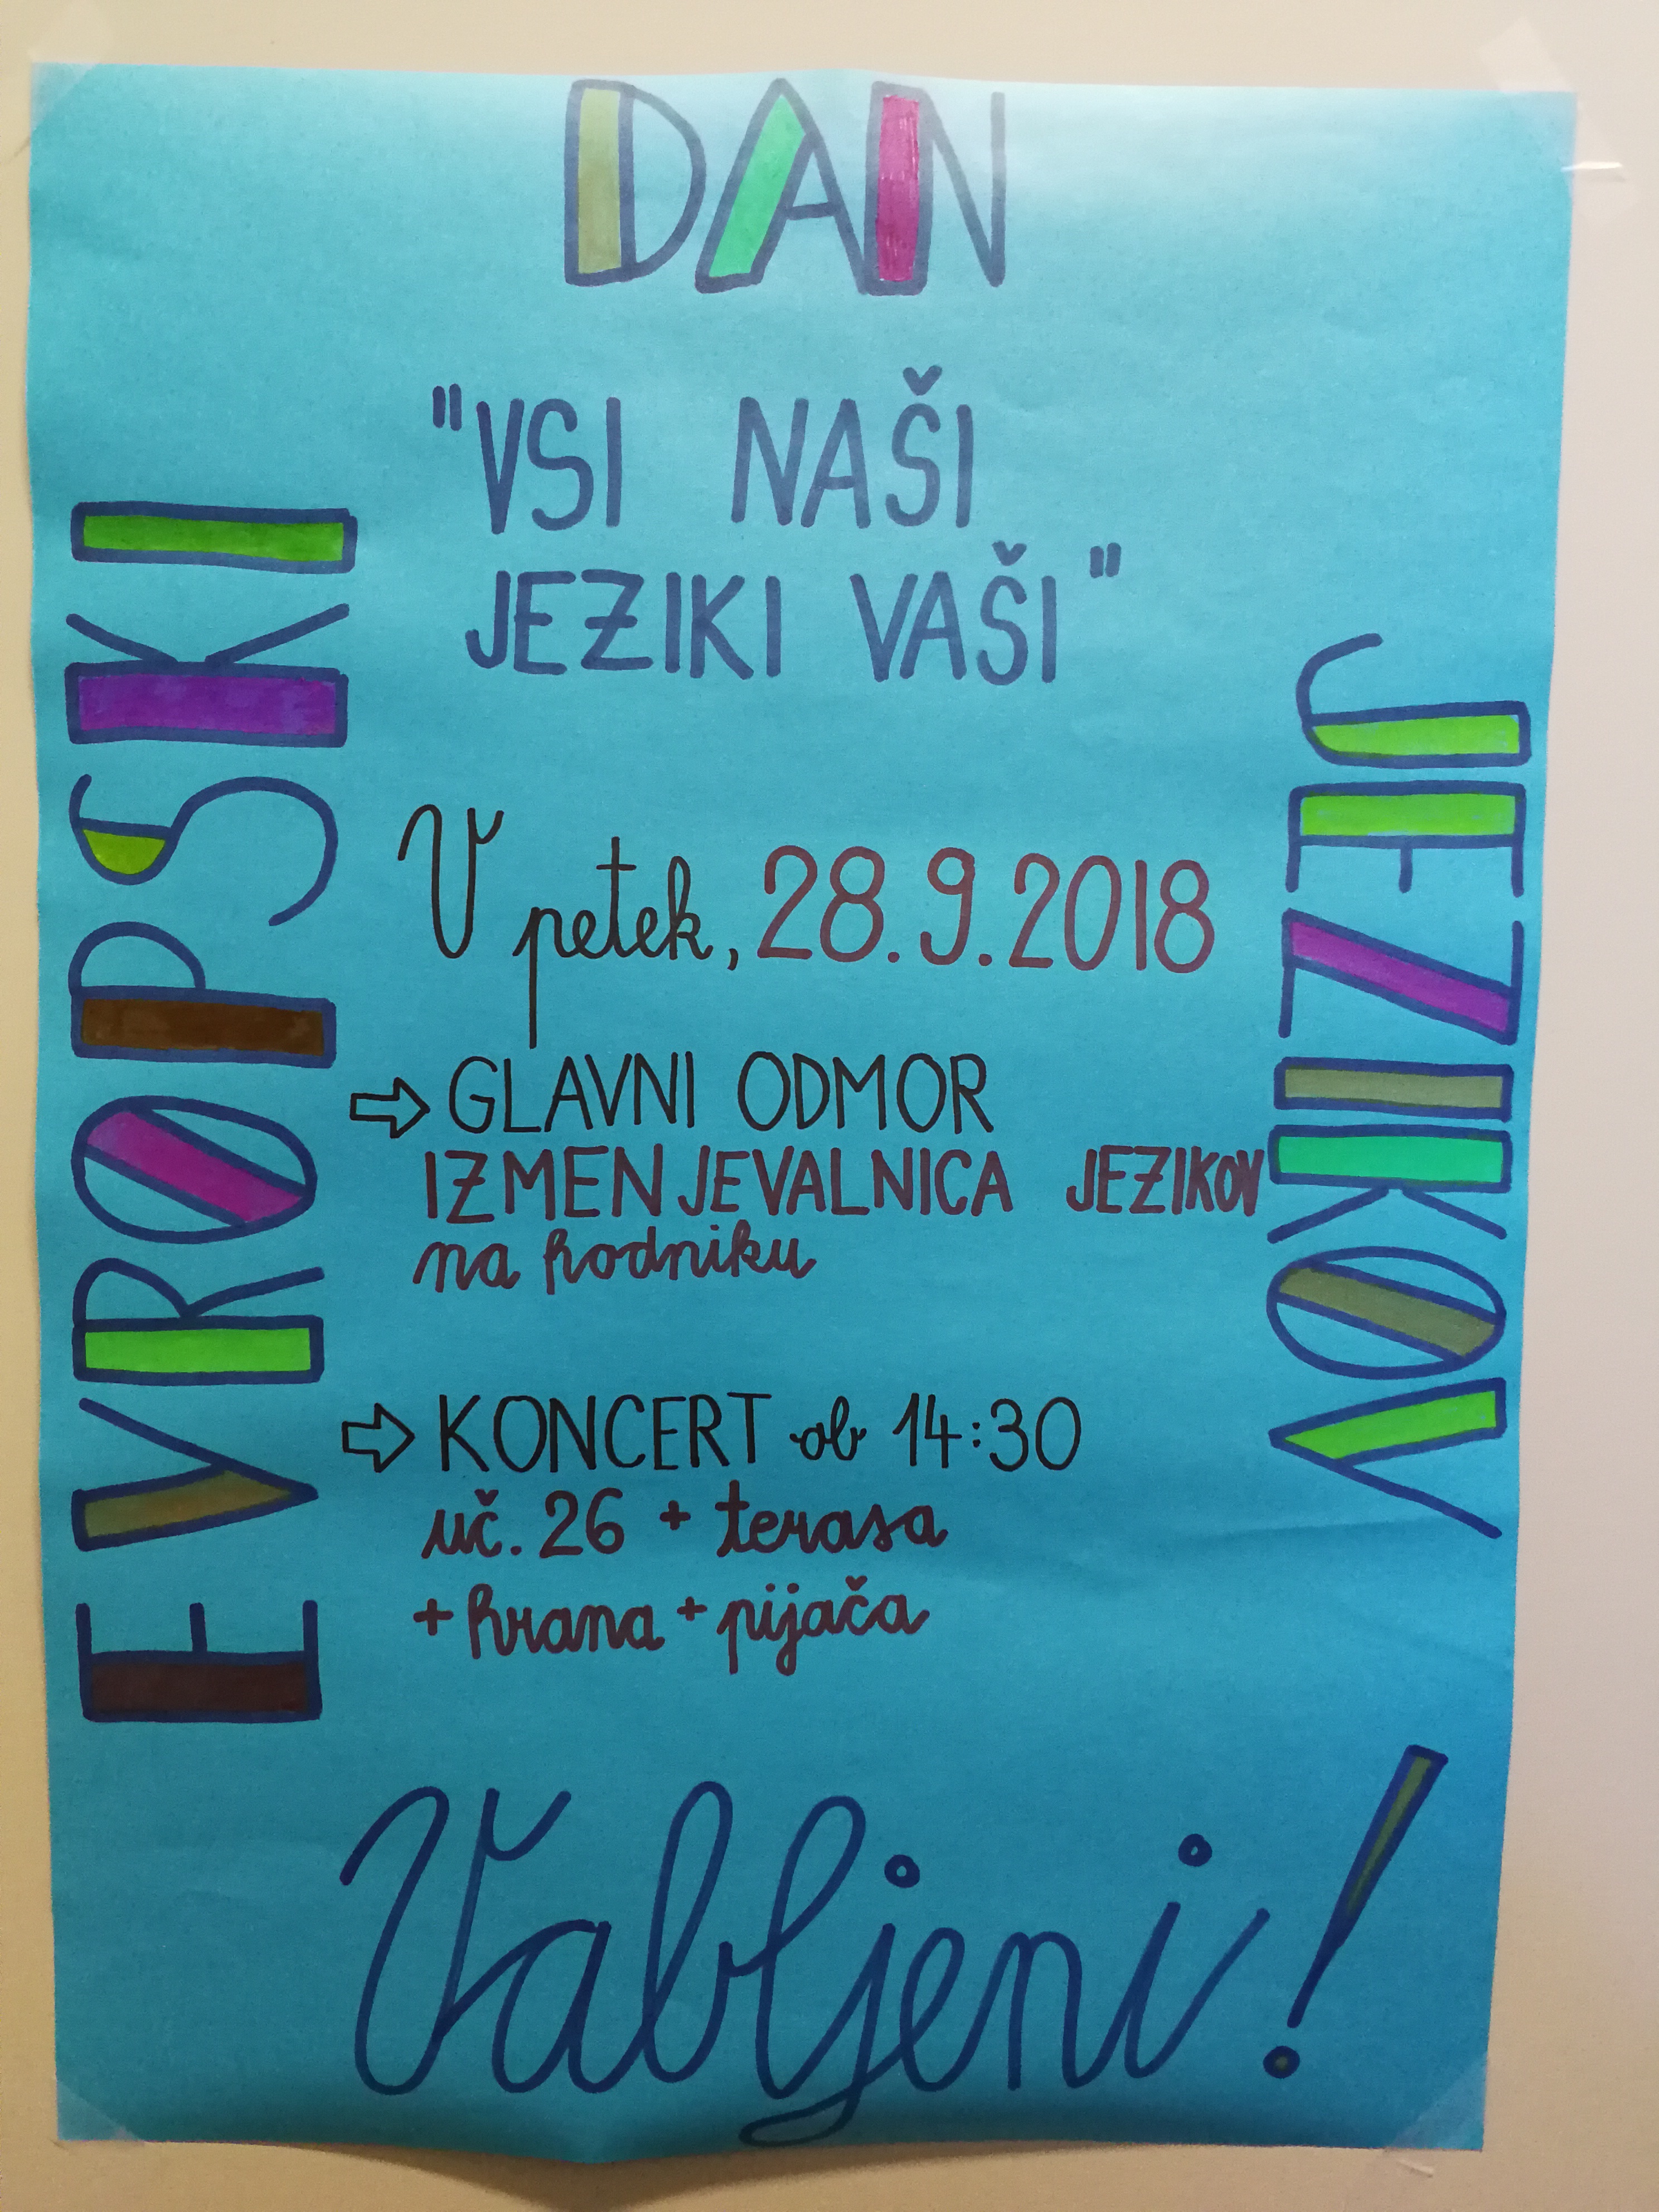 EVROPSKI
DAN
JEZIKOV
"VSI NAŠI
JEZIKI VAŠI"
V petek, 28.9.2018
⇨ GLAVNI ODMOR
IZMENJEVALNICA JEZIKOV
na hodniku
⇨ KONCERT ob 14:30
uč. 26 + terasa
+ hrana + pijača
Vabljeni!